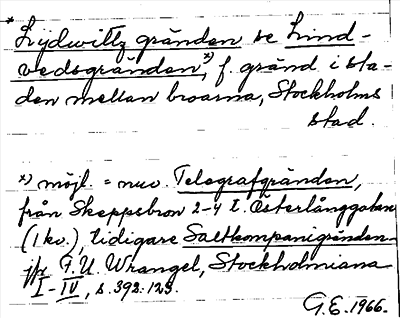 * Lijdwittz gränden se Lind-
vedsgränden,*) f. gränd i sta-
den mellan broarna, Stockholms
stad.
*) möjl. = nuv. Telegrafgränden,
från Skeppsbron 2-4 t. Österlånggatan
(1 kv.), tidigare Saltkompanigränden
jfr F. U. Wrangel, Stockholmiana
I-IV, s. 392. 123.
G.E. 1966.